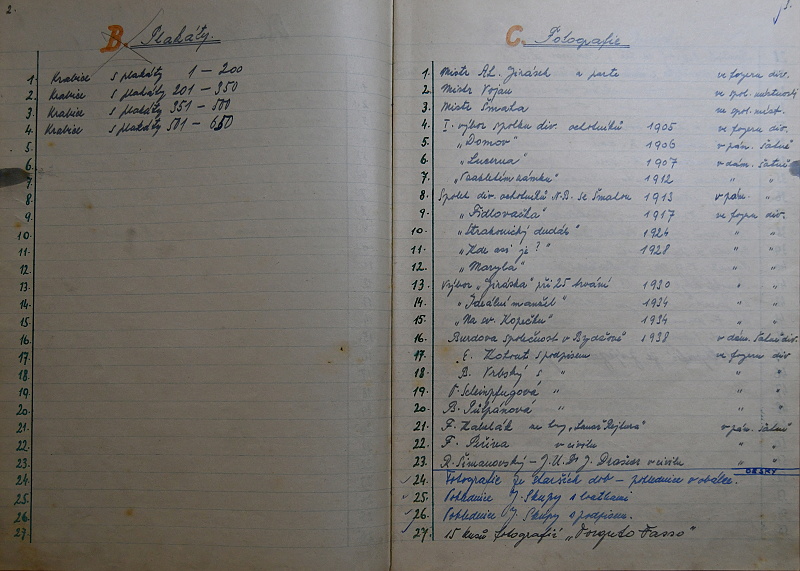 2.
B. Plakáty.
1. Krabice s plakáty 1 – 200
2. Krabice s plakáty 201 – 350
3. Krabice s plakáty 351 – 500
4. Krabice s plakáty 501 – 650
5.
6.
7.
8.
9.
10.
11.
12.
13.
14.
15.
16.
17.
18.
19.
20.
21.
22.
23.
24.
25.
26.
27.
3.
C. Fotografie
1. Mistr Al. Jirásek a ve foyeru div.
2. Mistr Vojan ve spol. místnosti
3. Mistr Šmaha ve spol. míst.
4. I. výbor spolku div. ochotníků 1905 ve foyeru div.
5. „Domov" 1906 v pán. šatně
6. „Lucerna" 1907 v dám. šatně
7. 1912 " "
8. Spolek div. ochotníků N.B. se Šmahou 1913 v pán. "
9. „Fidlovačka" 1917 ve foyeru div.
10. „Strakonický dudák" 1924 " "
11. „Kde asi je?" 1928 " "
12. „Maryša" " "
13. Výbor „Jiráska" při 25 trvání 1930 " "
14. „Ideální manžel" 1934 " "
15. „Na sv. Kopečku" 1934 " "
16. Burdova společnost v Bydžově 1938 v dám. šatně div.
17. E. Kohout s podpisem ve foyeru div
18. B. Vrbský s " " "
19. Scheinpflugová " " "
20. B. Půlpánová " " "
21. F. v pán. šatně
22. F. Peřina v civilu " "
23. R. Šimanovský – J.U.Dr J. v civilu " "
DESKY
24. Fotografie ze starších dob – pohlednice v obálce.
25. Pohlednice J. Skupy s loutkami
26. Pohlednice J. Skupy s podpisem.
27. 15 kusů fotografií „Torquto Tasso"